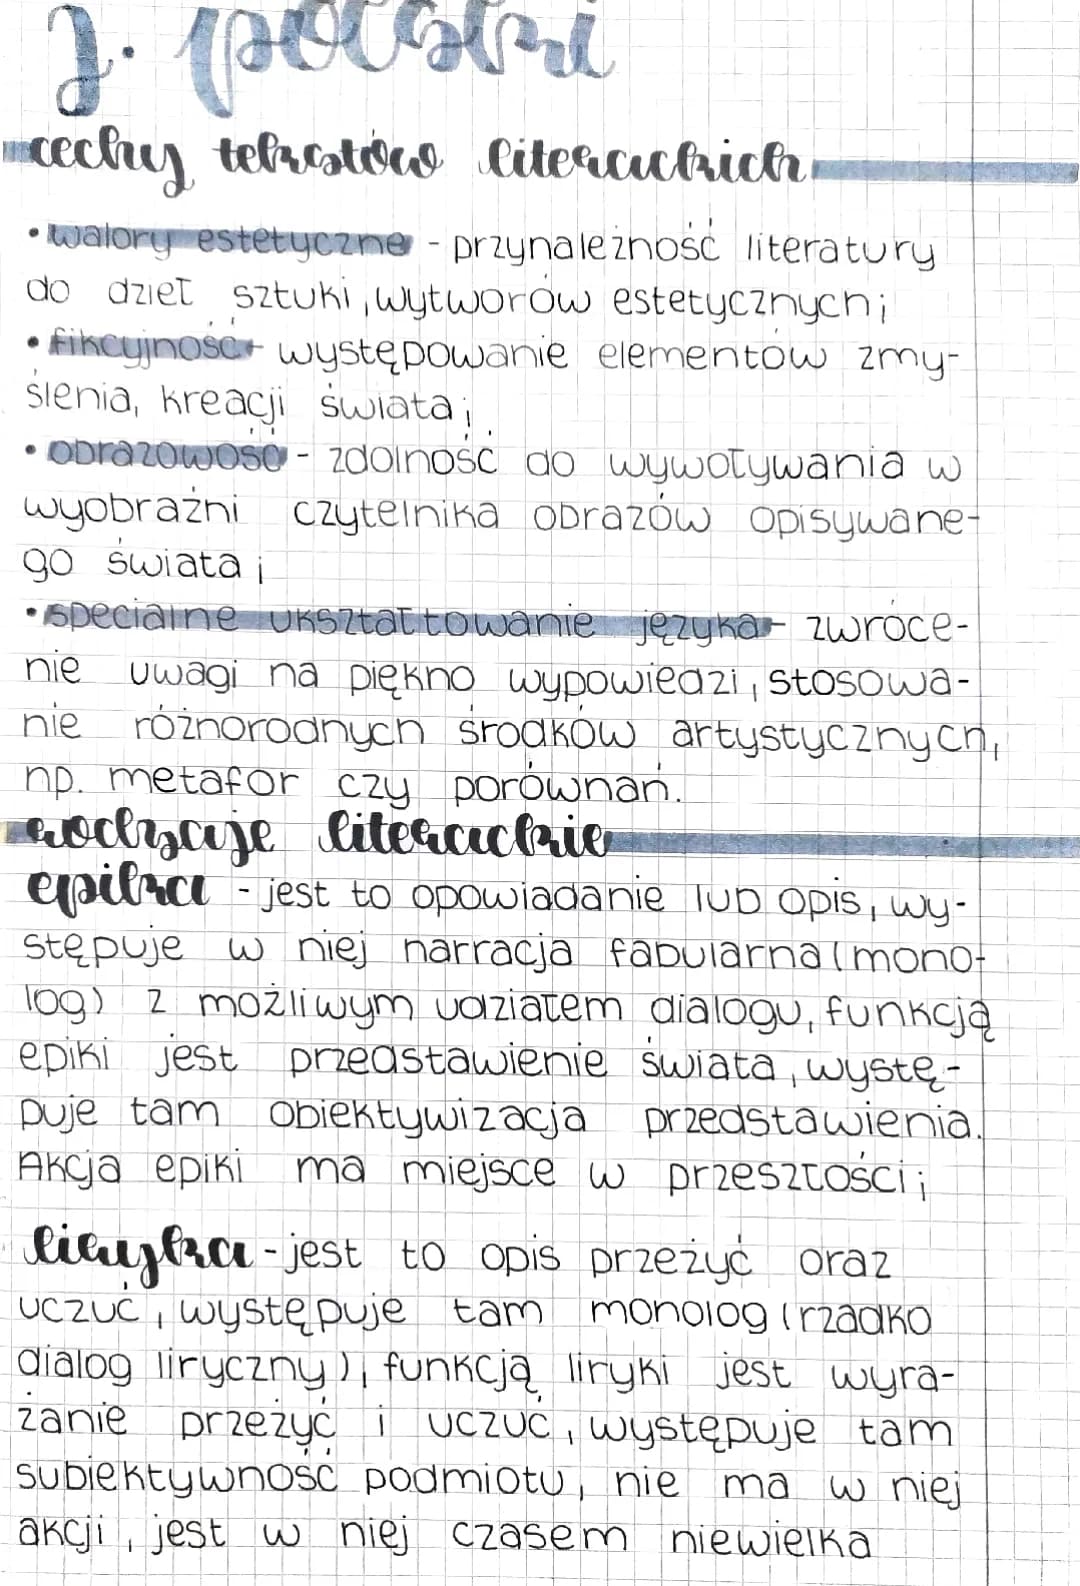 j. polski
cechy tekstów literackich
• walory estetyczne - przynależność literatury
do dzieł sztuki, wytworów estetycznych;
• fikcyjność - występowanie elementów zmy-
ślenia, kreacji świata;
• obrazowość - zdolność do wywoływania w
wyobraźni czytelnika obrazów opisywane-
go świata;
• specjalne ukształtowanie języka - zwróce-
nie uwagi na piękno wypowiedzi, stosowa-
nie różnorodnych środków artystycznych,
np. metafor czy porównań.
rodzaje literackie
epika - jest to opowiadanie lub opis, wy-
stępuje w niej narracja fabularna (mono-
log) z możliwym udziałem dialogu, funkcją
epiki jest przedstawienie świata, wystę-
puje tam obiektywizacja przedstawienia.
Akcja epiki ma miejsce w przeszłości;
liryka - jest to opis przeżyć oraz
uczuć, występuje tam monolog (rzadko
dialog liryczny), funkcją liryki jest wyra-
żanie przeżyć i uczuć, występuje tam
subiektywność podmiotu, nie ma w niej
akcji, jest w niej czasem niewielka